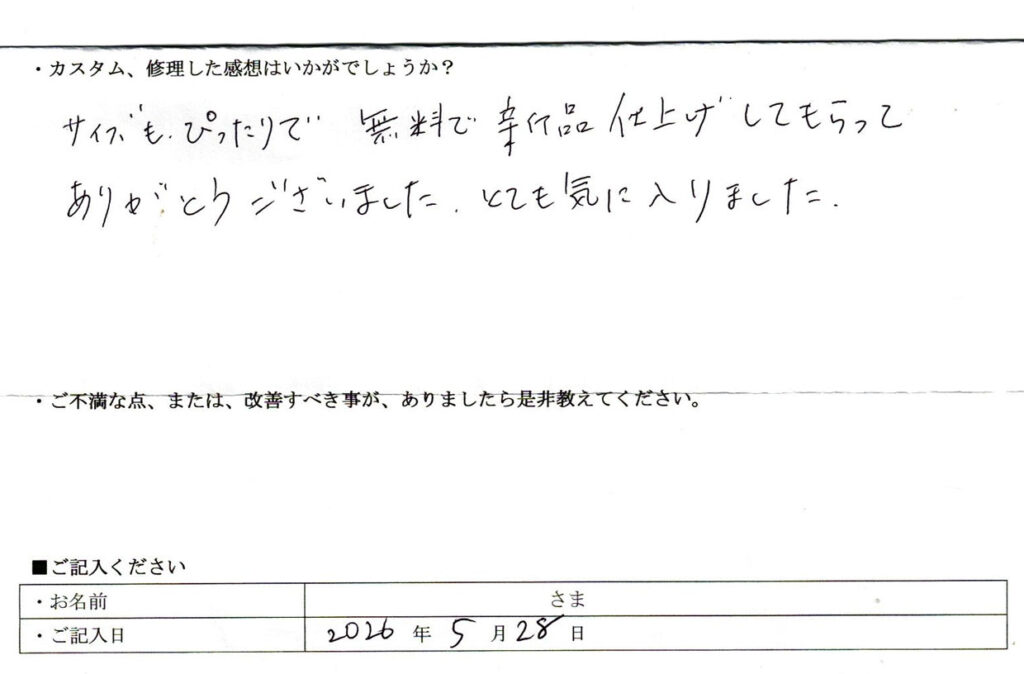 ・カスタム、修理した感想はいかがでしょうか？
サイズも.ぴったりで 無料で 新品 仕上げしてもらって
ありがとうございました. とても気に入りました.
・ご不満な点、または、改善すべき事が、ありましたら是非教えてください。
■ご記入ください
・お名前 さま
・ご記入日 2026 年 5 月 28 日